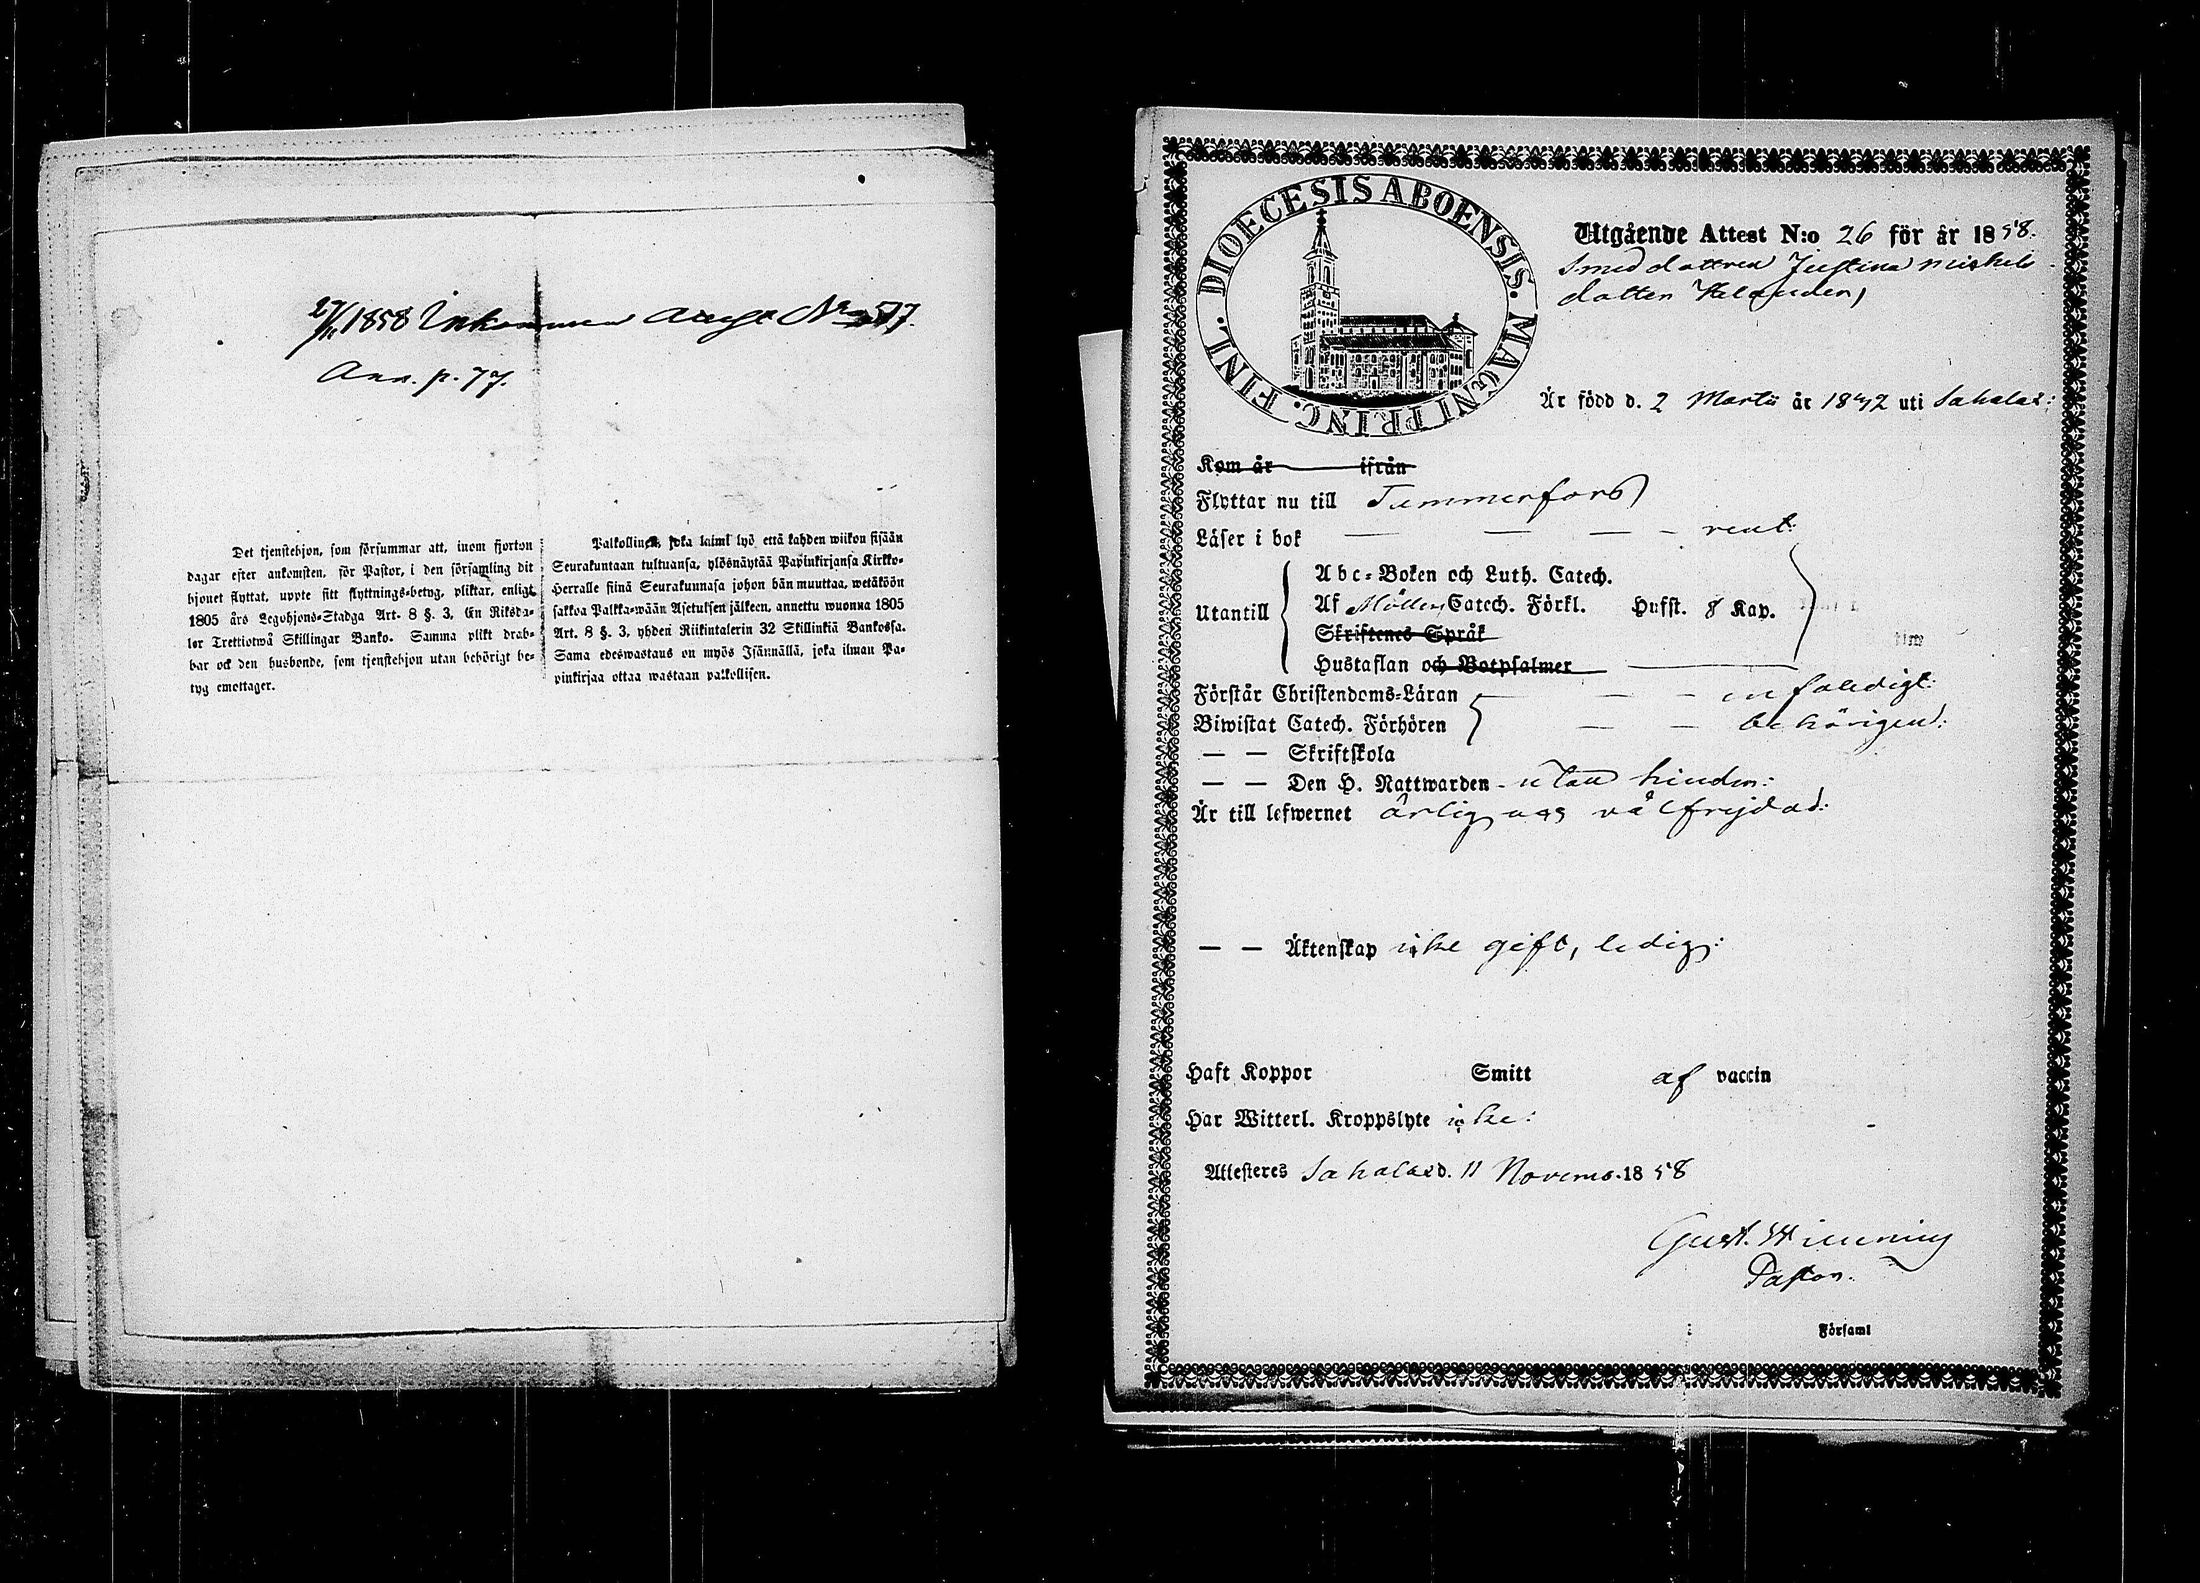 27/11 1858 Inkommen
Ann. p. 77.
Det tjenstehjon, som försummar att, inom fjorton
dagar efter ankomsten, för Pastor, i den församling dit
hjonet flyttat, uppte sitt flyttnings-betyg, pliktar, enligt
1805 års Legohjons-Stadga Art. 8 §. 3, En Riksda-
ler Trettiotwå Skillingar Banko. Samma plikt drab-
bar ock den husbonde, som tjenstehjon utan behörigt be-
tyg emottager.
Palkollinen, joka laimi lyö että kahden wiikon sisään
Seurakuntaan tultuansa, ylösnäytää Papinkirjansa Kirkko-
Herralle siinä Seurakunnasa johon hän muuttaa, wetäköön
sakkoa Palkka-wään Asetuksen jälkeen, annettu wuonna 1805
Art. 8 §. 3, yhden Riikintalerin 32 Skillinkiä Bankossa.
Sama edeswastaus on myös Isännällä, joka ilman Pa-
pinkirjaa ottaa wastaan palkollisen.
DIOECESIS ABOENSIS. MAGNI PRINC. FINL.
Utgående Attest N:o 26 för år 1858.
Smed dottren Justina Michels
dotter
Är född d. 2 Martii år 1842 uti Sahalax:
Kom år ifrån
Flyttar nu till Tammerfors
Läser i bok — — — — rent:
Utantill
Abc-Boken och Luth. Catech.
Af Möllers Catech. Förkl. Husst. 8 Kap.
Skriftenes Språk
Hustaflan och Botpsalmer
Förstår Christendoms-Läran — — — enfaldigt:
Biwistat Catech. Förhören — — behörigen:
— — Skriftskola
— — Den H. Nattwarden - utan hinder:
Är till lefwernet ärlig och välfrejdad:
— — Äktenskap icke gift, ledig:
Haft Koppor Smitt af vaccin
Har Witterl. Kroppslyte icke:
Attesteres Sahalax d. 11 Novemb. 1858
Gust.
Pastor.
Församl